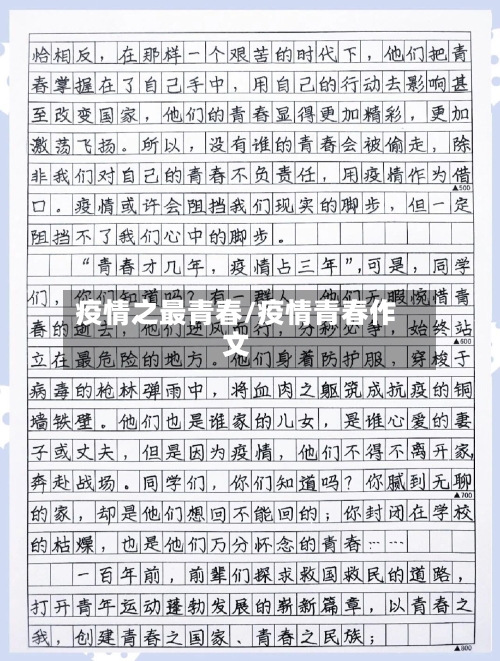 恰相反，在那样一个艰苦的时代下，他们把青
春掌握在了自己手中，用自己的行动去影响甚
至改变国家，他们的青春显得更加精彩，更加
激荡飞扬。所以，没有谁的青春会被偷走，除
非我们对自己的青春不负责任，用疫情作为借
▲500
口。疫情或许会阻挡我们现实的脚步，但一定
阻挡不了我们心中的脚步。
“青春才几年，疫情占三年”，可是，同学
们，你们知道吗？有一群人，他们无暇惋惜青
疫情之最青春/疫情青春作
文
春的逝去，他们逆风而行，分秒必争，始终站
▲600
立在最危险的地方。他们身着防护服，穿梭于
病毒的枪林弹雨中，将血肉之躯筑成抗疫的铜
墙铁壁。他们也是谁家的儿女，是谁心爱的妻
子或丈夫，但是因为疫情，他们不得不离开家，
奔赴战场。同学们，你们知道吗？你腻到无聊
▲700
的家，却是他们想回不能回的；你封闭在学校
的枯燥，也是他们万分怀念的青春……
一百年前，前辈们探求救国救民的道路，
打开青年运动蓬勃发展的崭新篇章，以青春之
我，创建青春之国家、青春之民族；
▲800